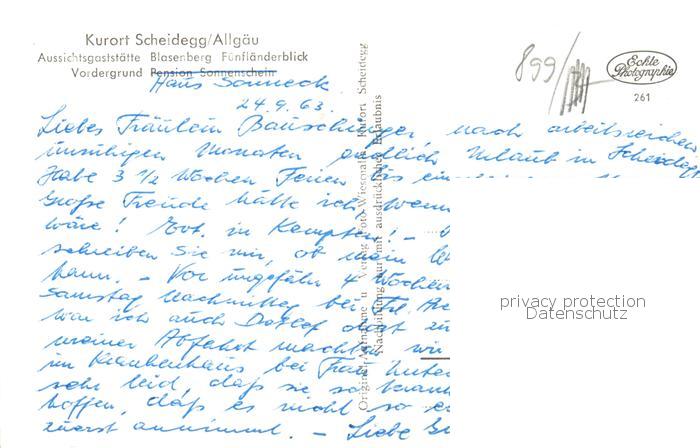 Kurort Scheidegg/Allgäu
Aussichtsgaststätte Blasenberg Fünfländerblick
Vordergrund Pension Sonnenschein
Haus Sonneck
24.9.63.
Liebes Fräulein nach arbeitsreichen
unruhigen Monaten endlich Urlaub in Scheidegg
Habe 3 1/2 Wochen Ferien bis
Große Freude hätte ich, wenn
wäre! Evt. in Kempten! –
schreiben Sie mir, ob mein
kann. – Vor ungefähr 4 Wochen
Samstag Nachmittag bei Frl.
war ich auch Detlef dort zu
meiner Abfahrt machten wir
im Krankenhaus bei Frau
sehr leid, daß sie so krank
hoffen, daß es nicht so
zuerst annimmt. – Liebe
Originalaufnahme u. Verlag Foto-Wiesmalla Kurort Scheidegg
Nachbildung nur mit ausdrücklicher Erlaubnis
899/
Echte
Photographie
261
privacy protection
Datenschutz